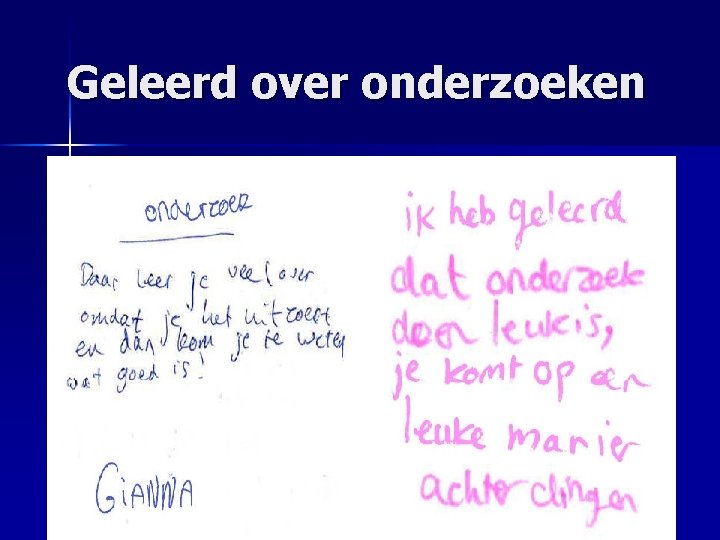 Geleerd over onderzoeken
onderzoek
Daar leer je veel over
omdat je het uitzoekt
en dan kom je te weten
wat goed is!
GiANNA
ik heb geleerd
dat onderzoek
doen leuk is,
je komt op een
leuke manier
achter dingen